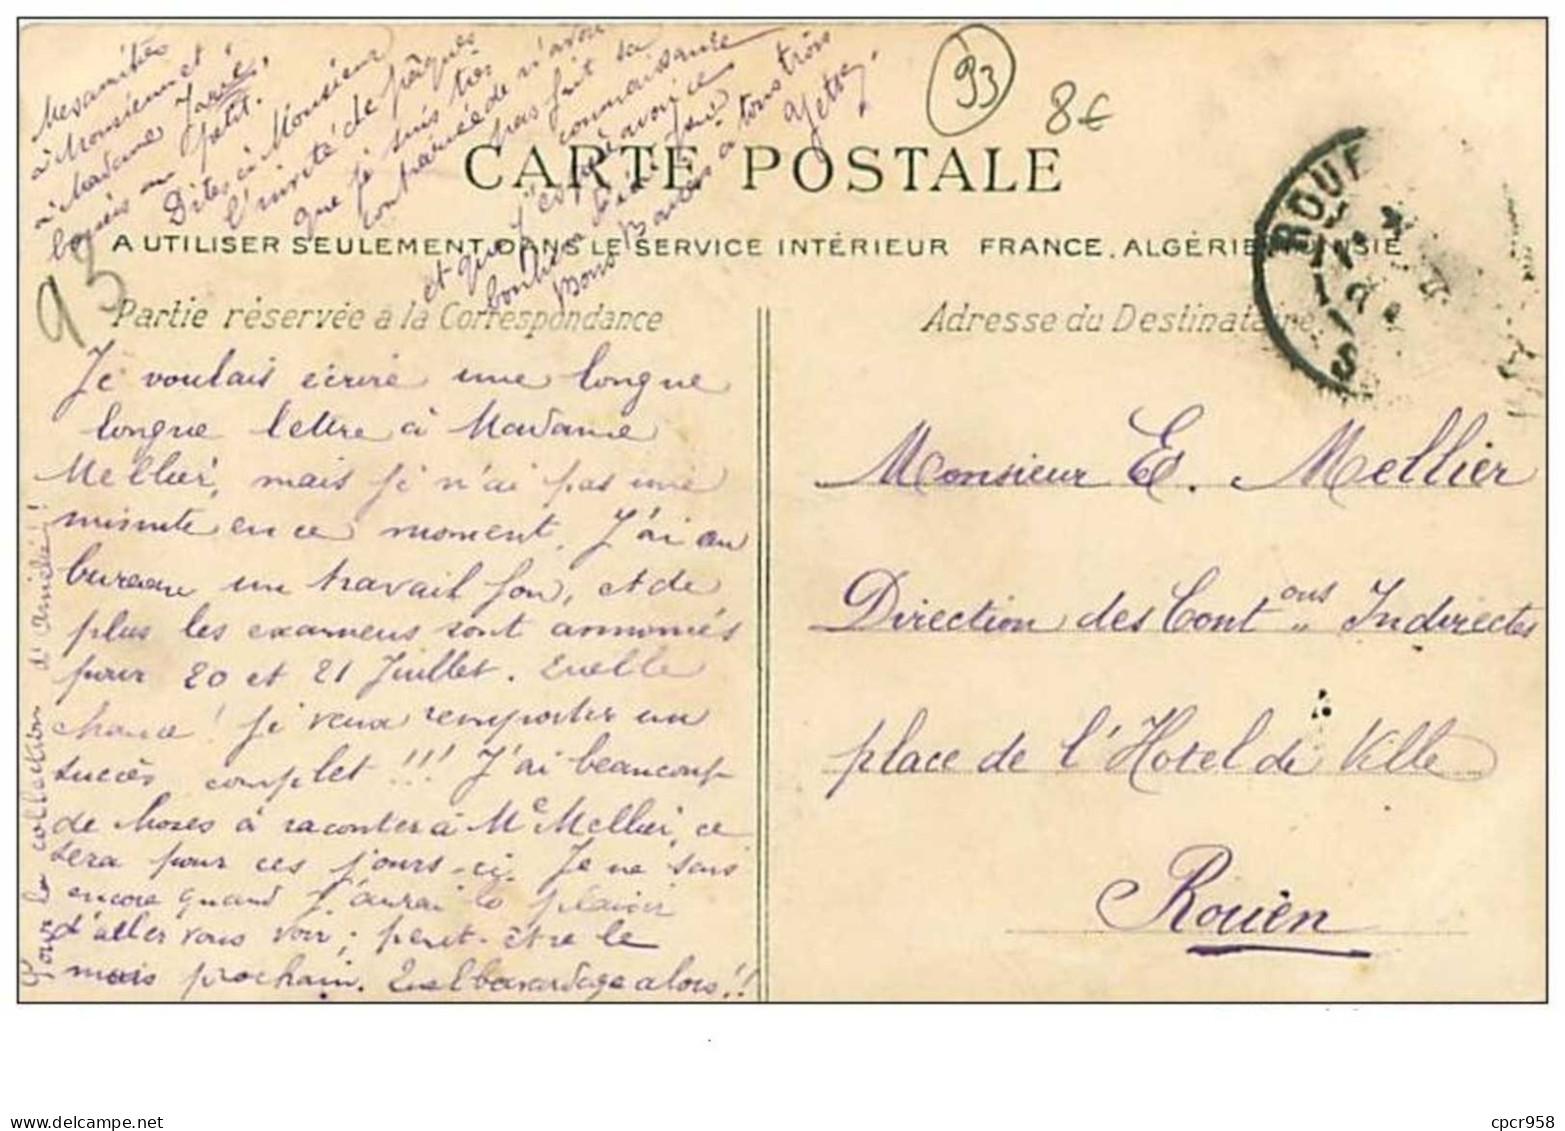 Mes amitiés
à Monsieur et
à Madame
baisers au petit.
Dites à Monsieur
l'invité de pâques
que je suis très
contrariée de n'avoir
pas fait sa
connaissance
et que j'espère avoir ce
bonheur
Bons Baisers à tous trois
93
8€
CARTE POSTALE
A UTILISER SEULEMENT DANS LE SERVICE INTÉRIEUR FRANCE, ALGÉRIE, TUNISIE
93
Partie réservée à la Correspondance
Adresse du Destinataire
ROUE
Je voulais écrire une longue
longue lettre à Madame
Mellier, mais je n'ai pas une
minute en ce moment. J'ai au
bureau un travail fou, et de
plus les examens sont annoncés
pour 20 et 21 Juillet. Quelle
chance! Je veux remporter un
succès complet!!! J'ai beaucoup
de choses à raconter à Me Mellier, ce
sera pour ces jours-ci. Je ne sais
encore quand j'aurai le plaisir
d'aller vous voir; peut-être le
mois prochain. Quel bavardage alors!!
Pour la collection d'amitié!!
Monsieur E. Mellier
Direction des Contons Indirectes
place de l'Hotel de Ville
Rouen
cpcr958